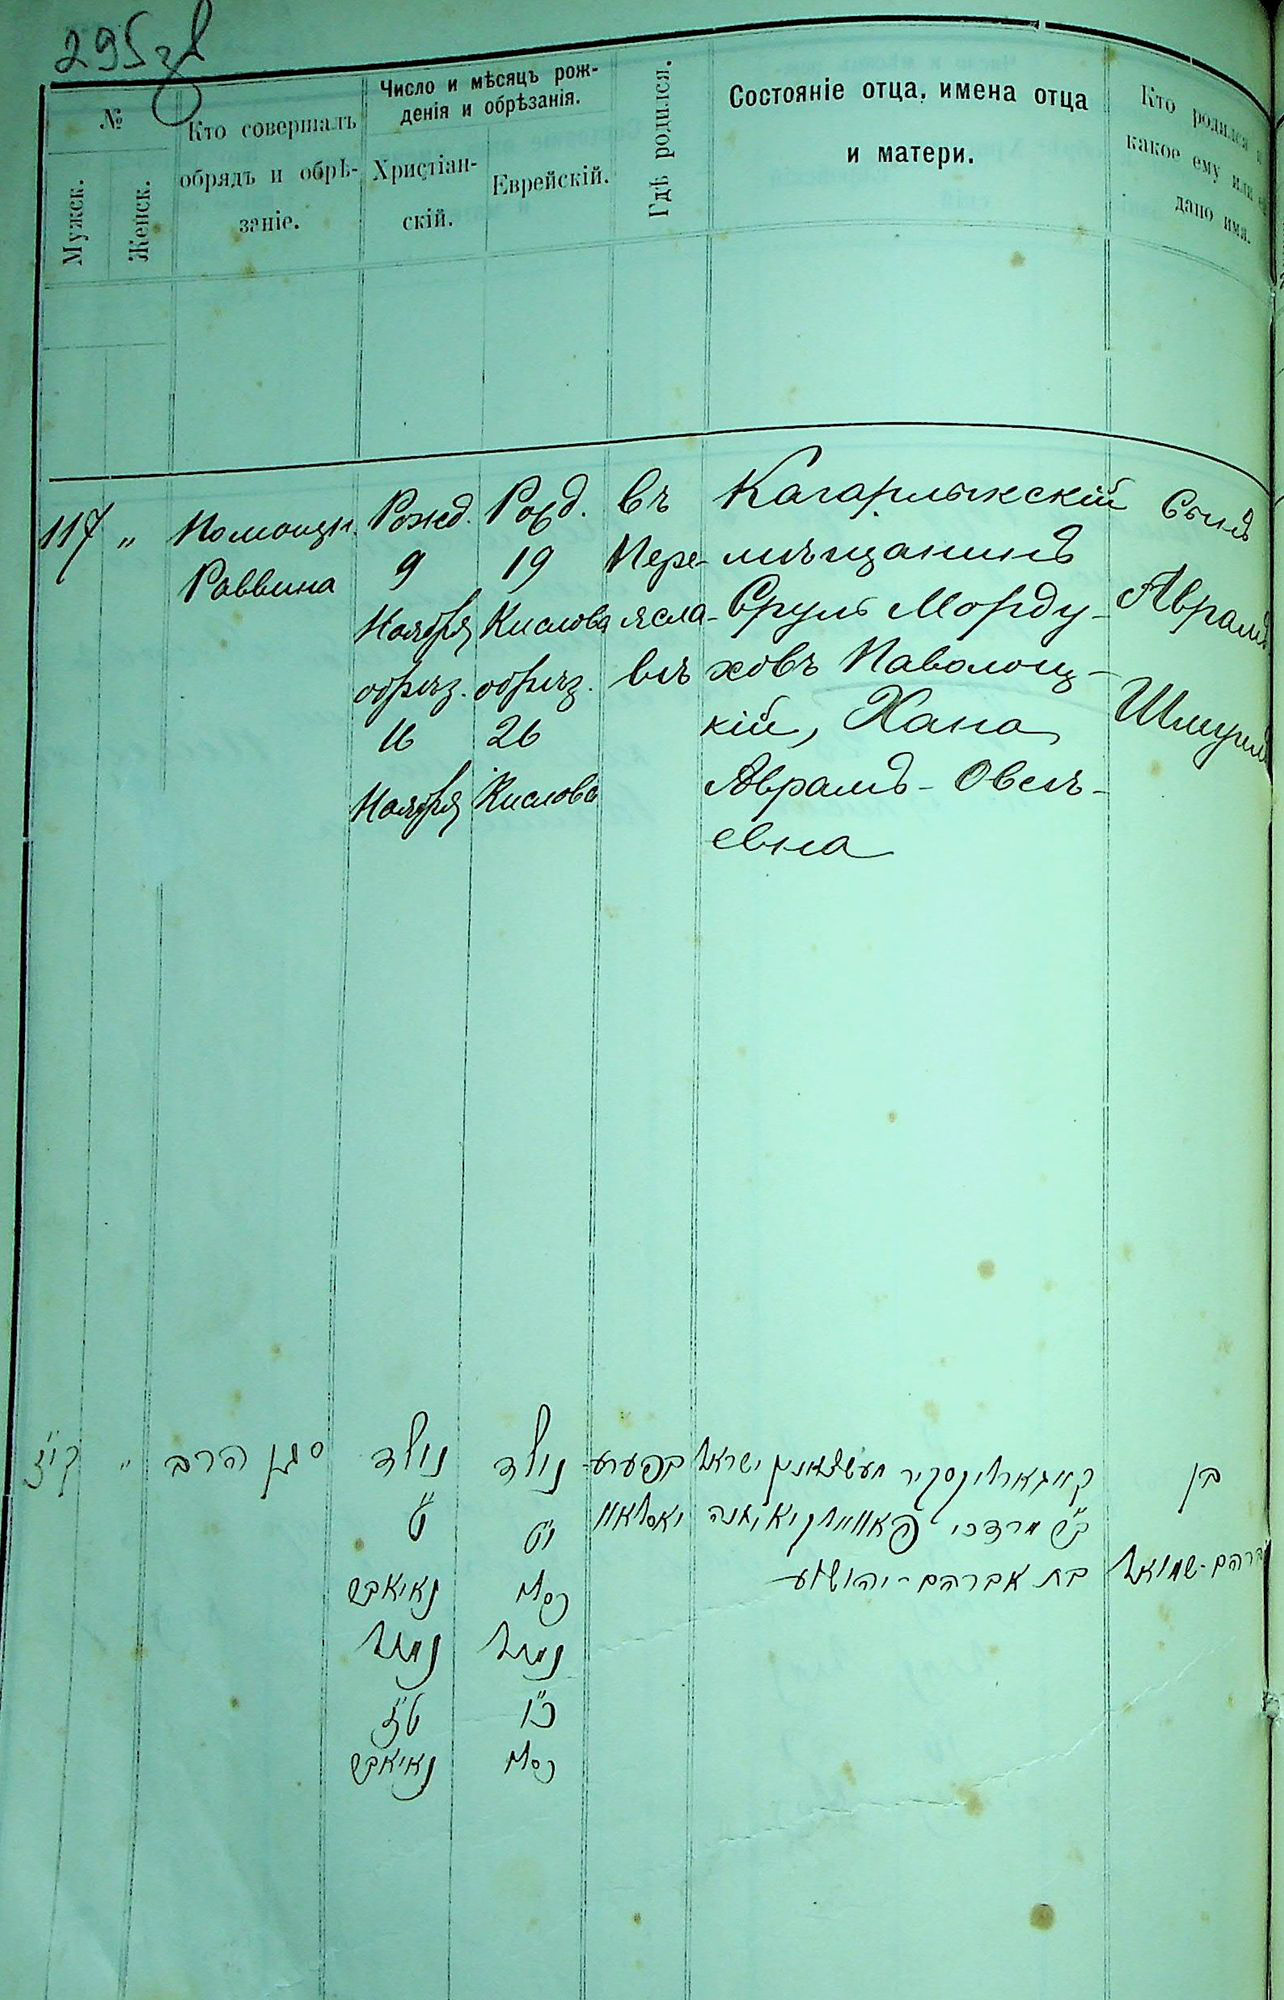 295 зв
№
Мужск.
Женск.
Кто совершалъ
обрядъ и обрѣ-
заніе.
Число и мѣсяцъ рож-
денія и обрѣзанія.
Христіан-
скій.
Еврейскій.
Гдѣ родился.
Состояніе отца, имена отца
и матери.
Кто родился и
какое ему или ей
дано имя.
117
"
Помощн.
Раввина
Рожд.
9
Ноября
обрѣз.
16
Ноября
Рожд.
19
Кислова
обрѣз.
26
Кислова
въ
Пере-
ясла-
влѣ
Кагарлыкскій
мѣщанинъ
Сруль Морду-
ховъ Паволоц-
кій, Хана
Аврамъ-Овсѣ-
евна
Сынъ
Аврамъ
Шмуиль
קי"ז
"
סגן הרב
נולד
ט'
נאיאבש
נימול
ט"ז
נאיאבש
נולד
י"ט
כסלו
נימול
כ"ו
כסלו
בפערע-
יאסלאוו
ישראל
ב"ש מרדכי
בת אברהם-יהושע
בן
אברהם-שמואל